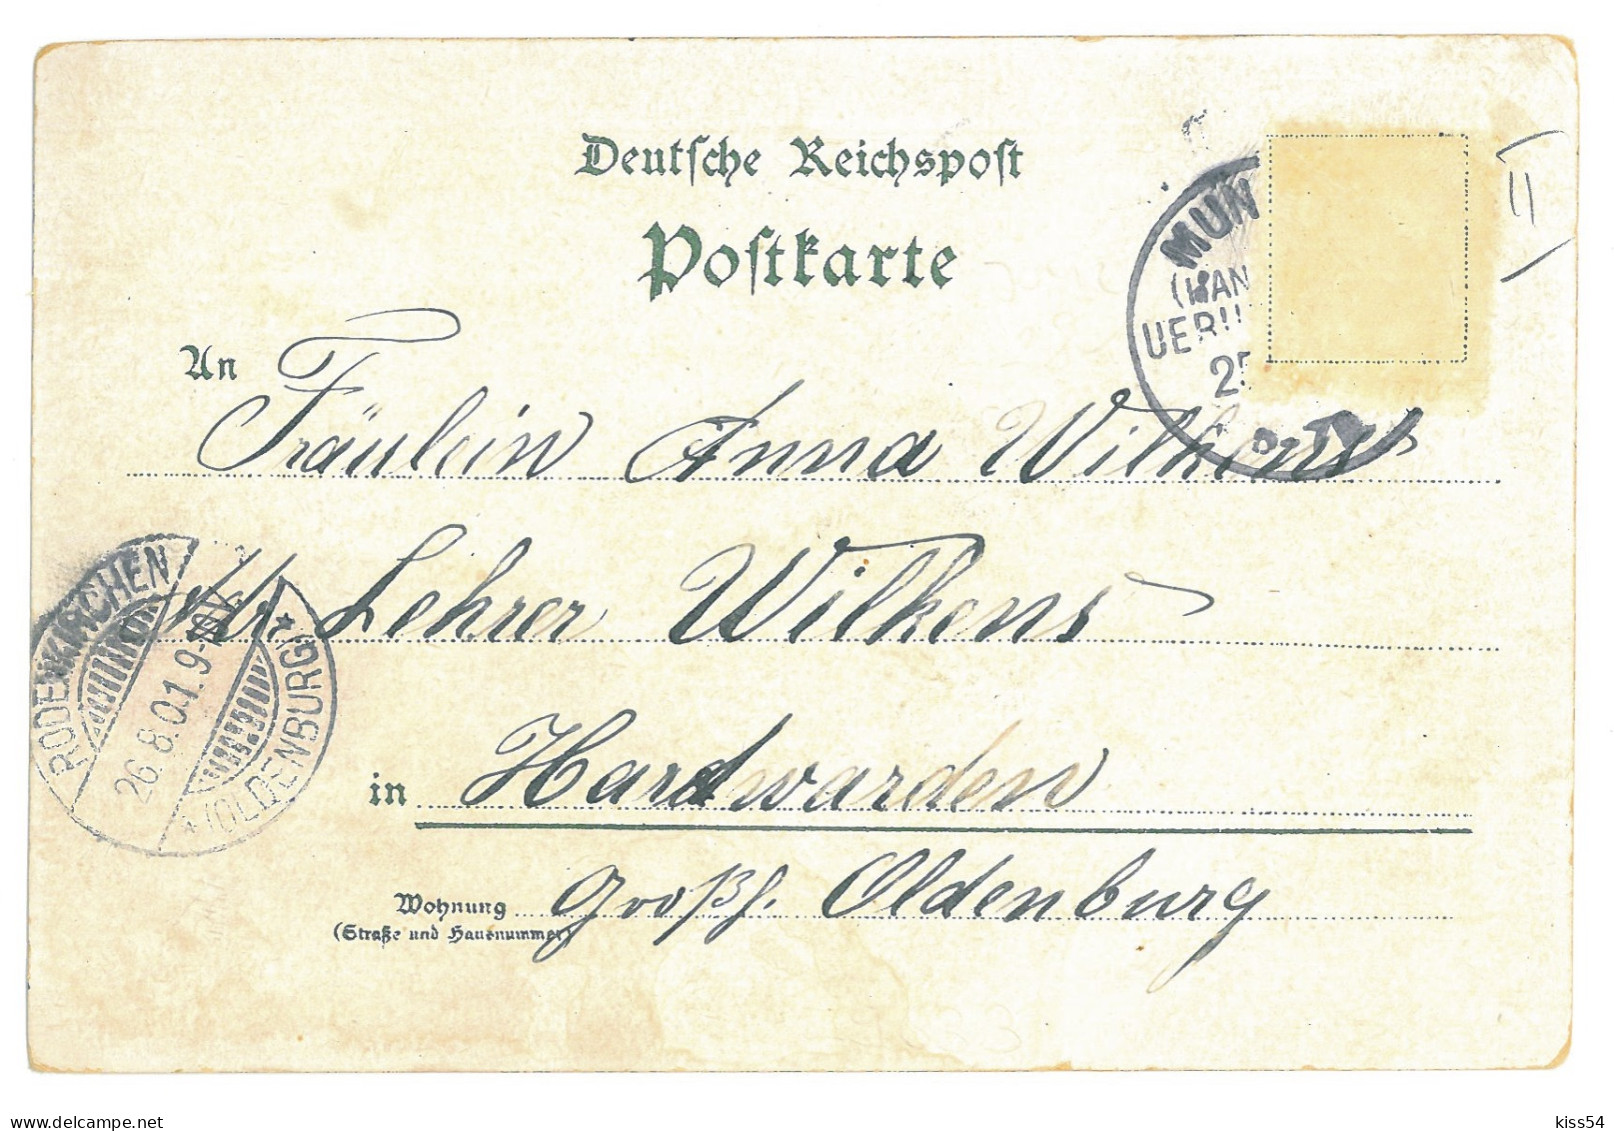 Deutsche Reichspost
Postkarte
MUN
(HAN
UEBU
25
An
Fräulein Anna Wilkens
Adr. Lehrer Wilkens
RODENKIRCHEN
26.8.01.9-10V.
*(OLDENBURG)*
in Hardwarden
Großh. Oldenburg
Wohnung
(Straße und Hausnummer)
www.delcampe.net
kiss54